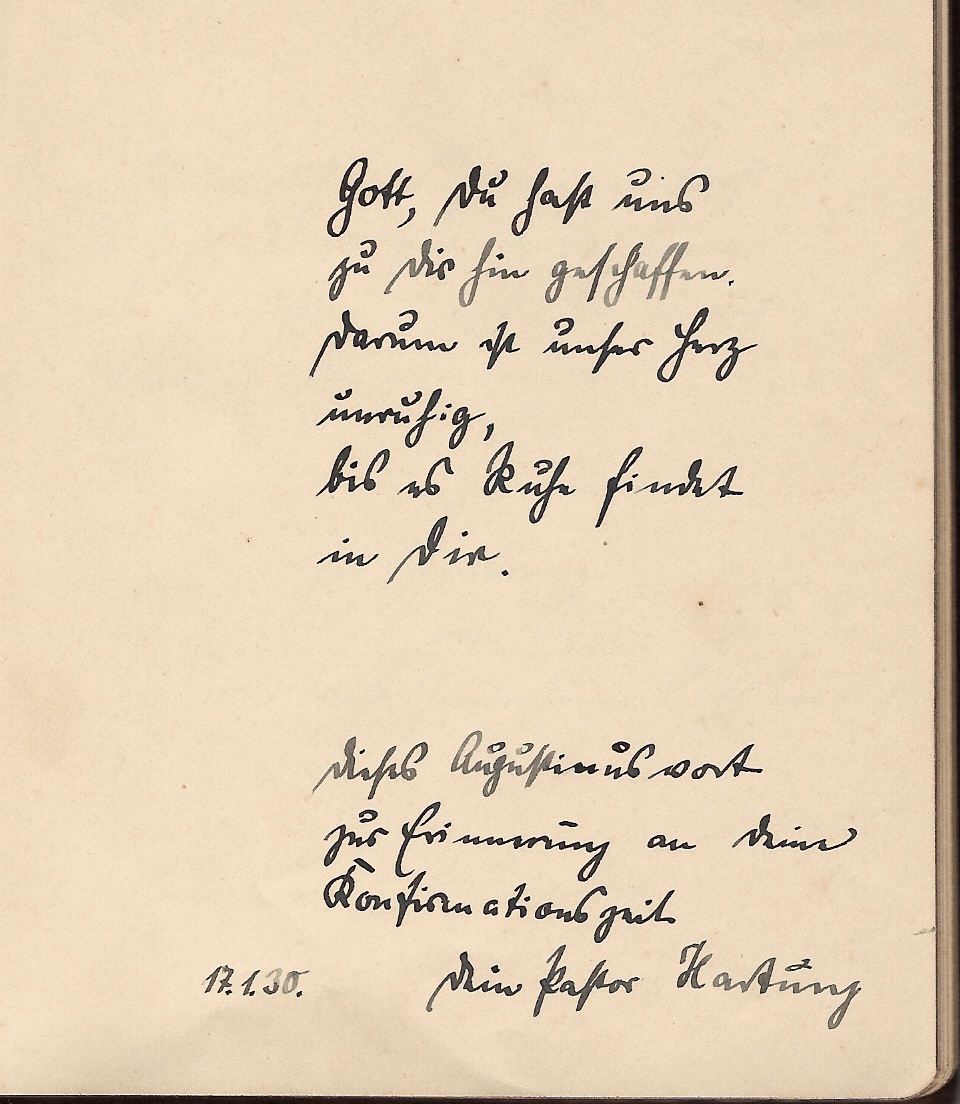 Gott, Du hast uns
zu Dir hin geschaffen.
Darum ist unser Herz
unruhig,
bis es Ruhe findet
in Dir.
Dieses Augustinuswort
zur Erinnerung an Deine
Konfirmationszeit
17.1.30. Dein Pastor Hartung